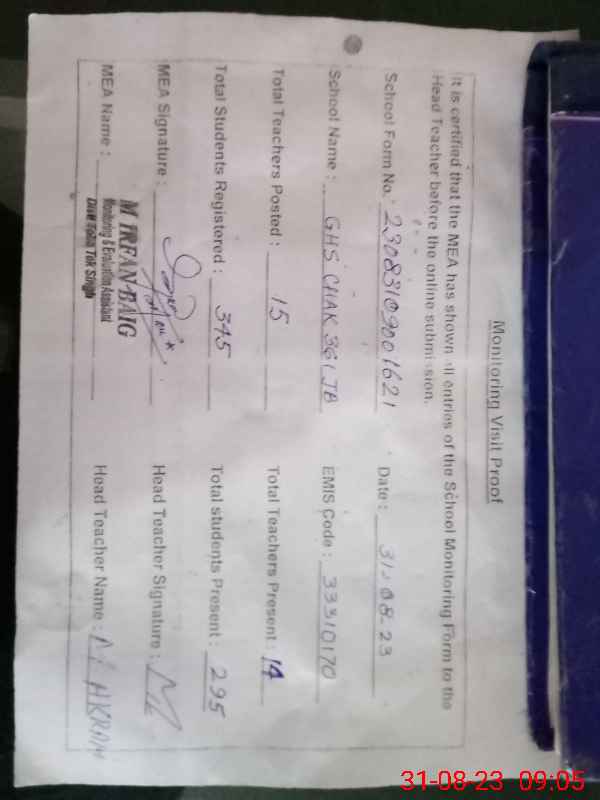 Monitoring Visit Proof
It is certified that the MEA has shown all entries of the School Monitoring Form to the
Head Teacher before the online submission.
School Form No.: 23083109001621 Date: 31-08-23
School Name: GHS CHAK 361 JB EMIS Code: 33310170
Total Teachers Posted: 15 Total Teachers Present: 14
Total Students Registered: 345 Total students Present: 295
MEA Signature: Head Teacher Signature:
MEA Name: M IRFAN BAIG Head Teacher Name: M AKRAM
Monitoring & Evaluation Assistant
Toba Tek Singh
31-08-23 09:05